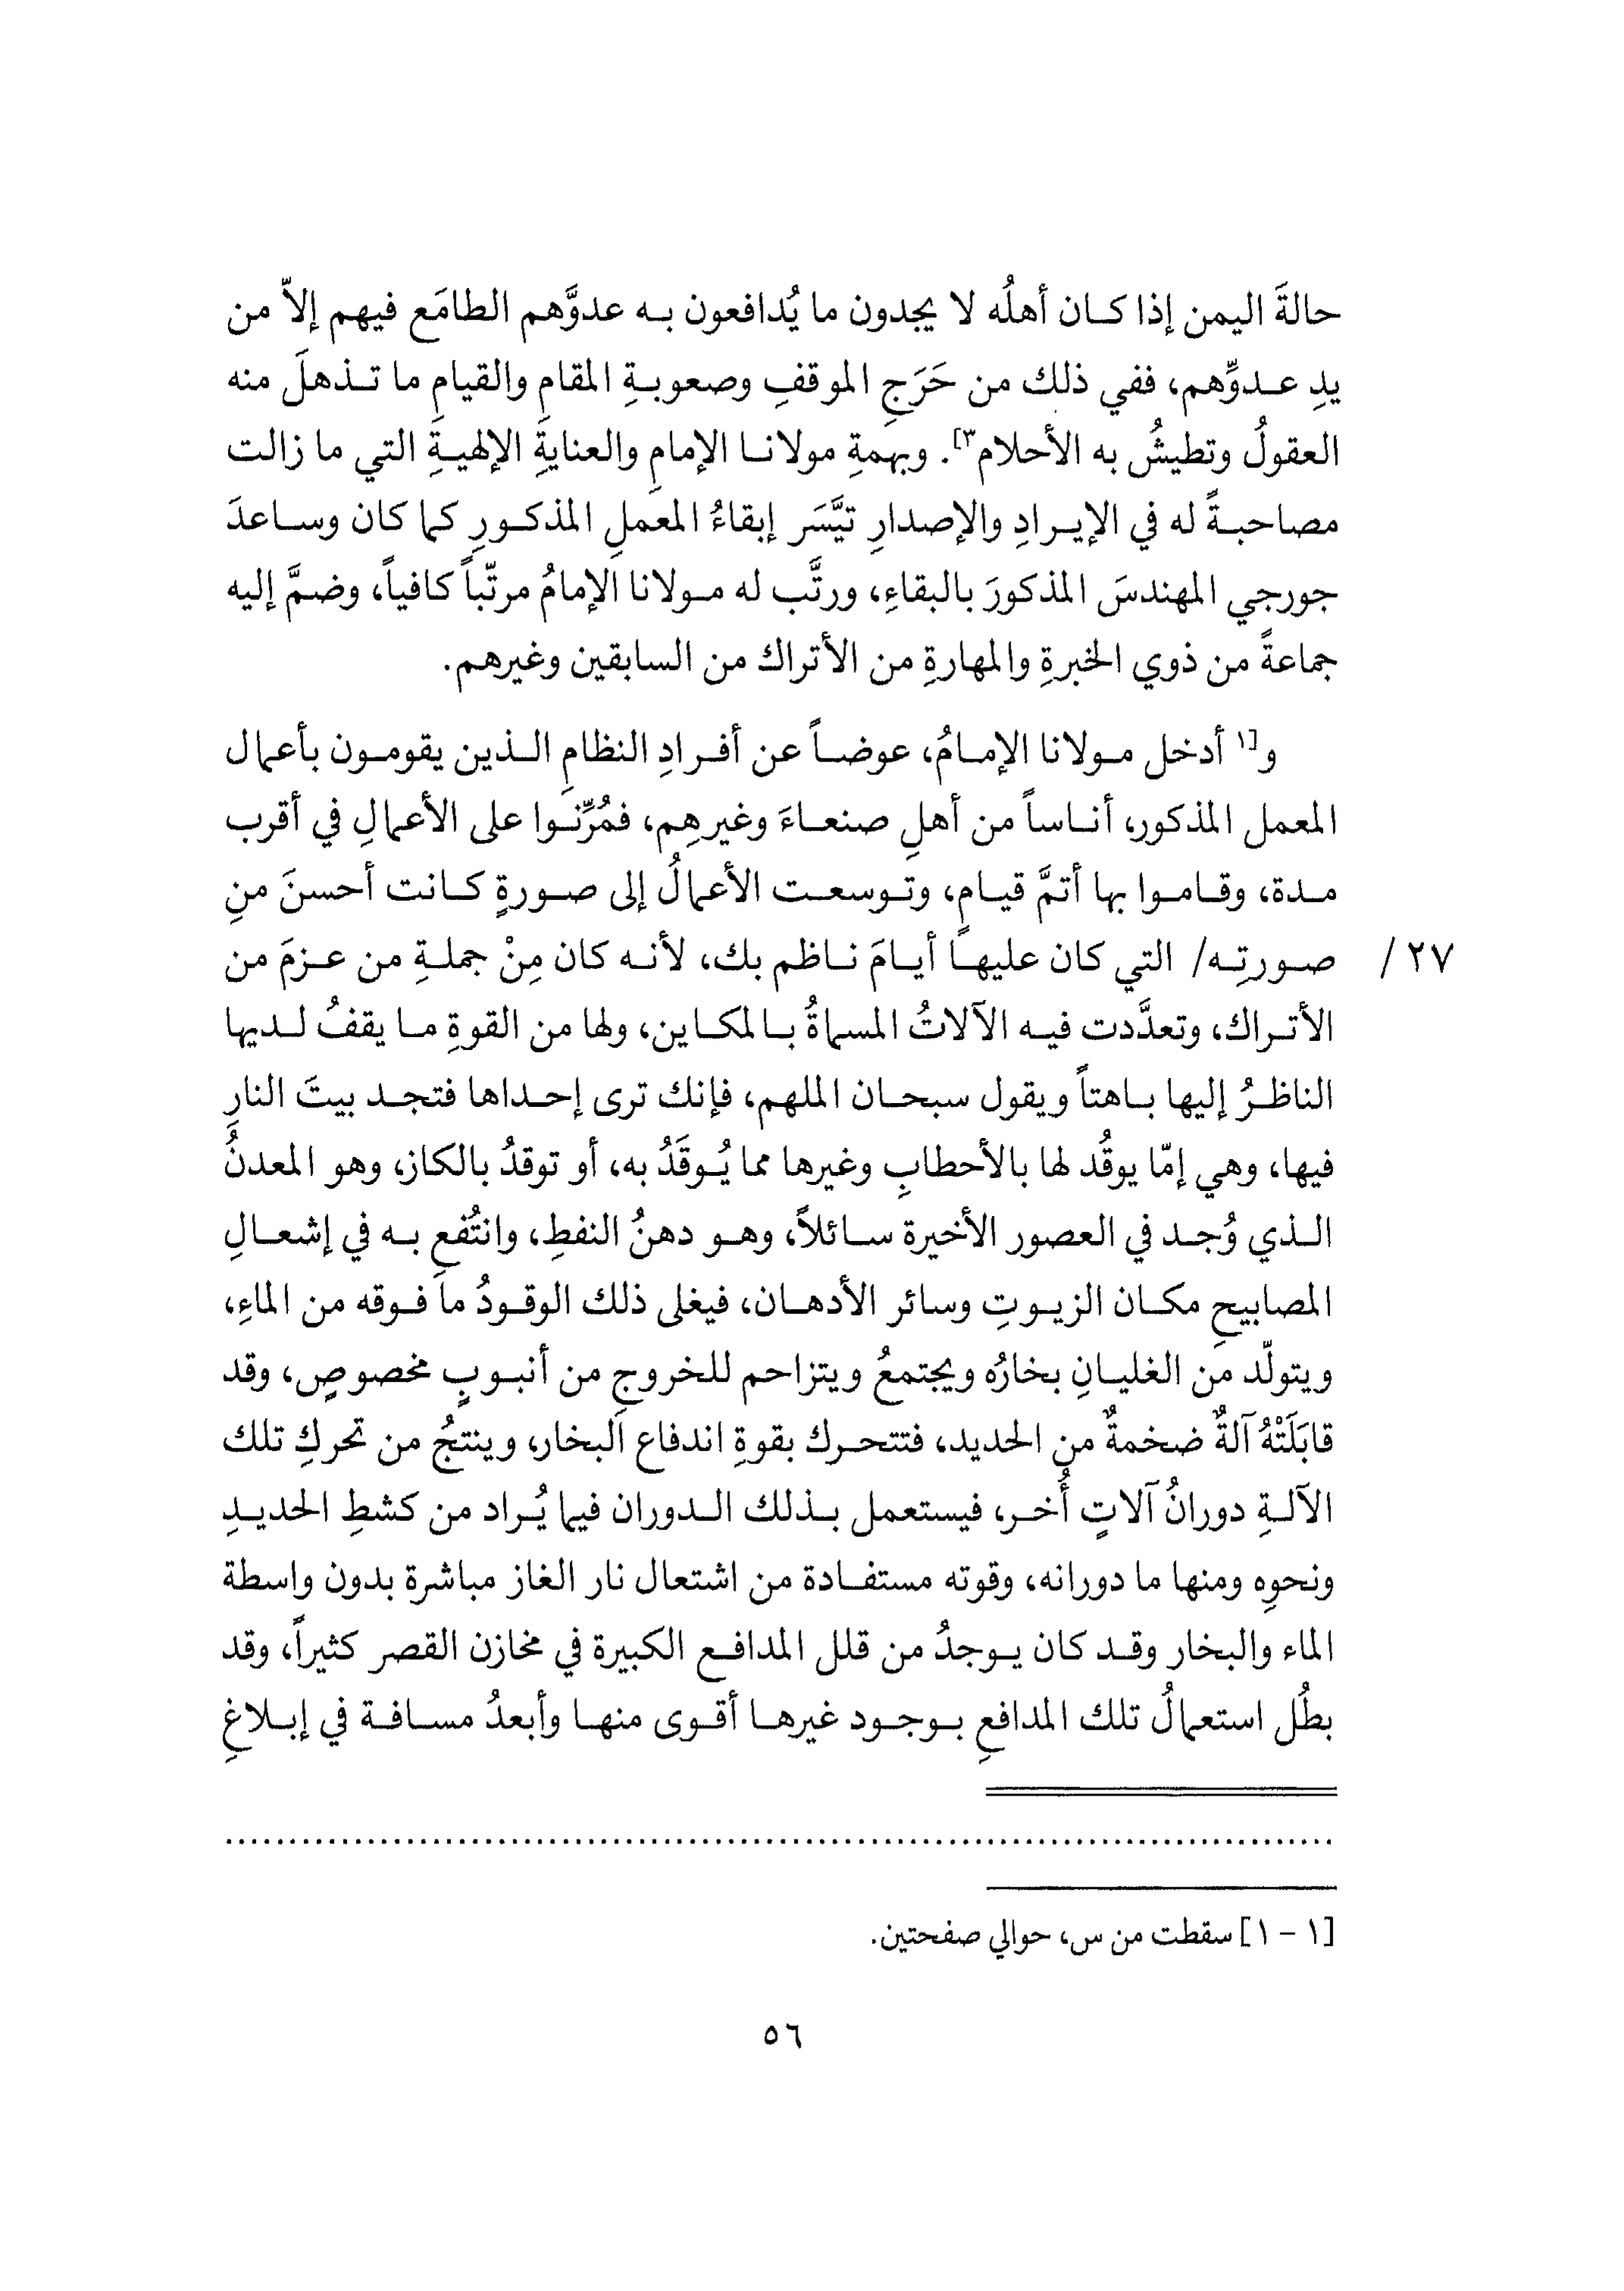 حالةَ اليمن إذا كان أهلُه لا يجدون ما يُدافعون به عدوَّهم الطامَع فيهم إلاّ من
يدِ عدوِّهم، ففي ذلك من حَرَجِ الموقفِ وصعوبةِ المقامِ والقيامِ ما تذهلَ منه
العقولُ وتطيشُ به الأحلام٣]. وبهمةِ مولانا الإمامِ والعنايةِ الإلهيةِ التي ما زالت
مصاحبةً له في الإيرادِ والإصدارِ تيَّسَر إبقاءُ المعملِ المذكورِ كما كان وساعدَ
جورجي المهندسَ المذكورَ بالبقاءِ، ورتَّب له مولانا الإمامُ مرتّباً كافياً، وضمَّ إليه
جماعةً من ذوي الخبرةِ والمهارةِ من الأتراك من السابقين وغيرهم.
و[١ أدخل مولانا الإمامُ، عوضاً عن أفرادِ النظامِ الذين يقومون بأعمال
المعمل المذكور، أناساً من أهلِ صنعاءَ وغيرهِم، فمُرِّنوا على الأعمالِ في أقرب
مدة، وقاموا بها أتمَّ قيامٍ، وتوسعت الأعمالُ إلى صورةٍ كانت أحسنَ منِ
صورتِه/ التي كان عليها أيامَ ناظم بك، لأنه كان مِنْ جملةِ من عزمَ من
٢٧ /
الأتراك، وتعدَّدت فيه الآلاتُ المسماةُ بالمكاين، ولها من القوةِ ما يقفُ لديها
الناظرُ إليها باهتاً ويقول سبحان الملهم، فإنك ترى إحداها فتجد بيتَ النارِ
فيها، وهي إمّا يوقُد لها بالأحطابِ وغيرها مما يُوقَدُ به، أو توقدُ بالكاز، وهو المعدنُ
الذي وُجد في العصور الأخيرة سائلاً، وهو دهنُ النفطِ، وانتُفع به في إشعالِ
المصابيحِ مكان الزيوتِ وسائر الأدهان، فيغلى ذلك الوقودُ ما فوقه من الماءِ،
ويتولّد من الغليانِ بخارُه ويجتمعُ ويتزاحم للخروجِ من أنبوبٍ مخصوصٍ، وقد
قابَلَتْهُ آلةٌ ضخمةٌ من الحديد، فتتحرك بقوةِ اندفاع البخار، وينتجُ من تحركِ تلك
الآلةِ دورانُ آلاتٍ أُخر، فيستعمل بذلك الدوران فيما يُراد من كشطِ الحديدِ
ونحوِه ومنها ما دورانه، وقوته مستفادة من اشتعال نار الغاز مباشرة بدون واسطة
الماء والبخار وقد كان يوجدُ من قلل المدافع الكبيرة في مخازن القصر كثيراً، وقد
بطُل استعمالُ تلك المدافعِ بوجود غيرها أقوى منها وأبعدُ مسافة في إبلاغِ
................................................................................
[١ - ١] سقطت من س، حوالي صفحتين.
٥٦